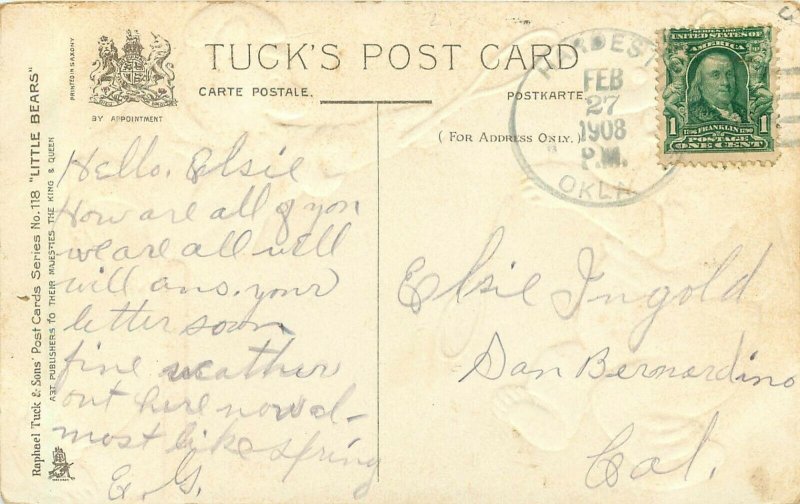 TUCK'S POST CARD
CARTE POSTALE.
POSTKARTE.
(FOR ADDRESS ONLY.)
PRINTED IN SAXONY
BY APPOINTMENT
Raphael Tuck & Sons' Post Cards Series No. 118 "LITTLE BEARS"
ART PUBLISHERS TO THEIR MAJESTIES THE KING & QUEEN
Hello. Elsie
How are all of you
we are all well
will ans. your
letter soon
fine weather
out here now al-
most like spring
E. G.
FEB
27
1908
P.M.
OKLA
SERIES 1902
UNITED STATES OF
AMERICA
1 FRANKLIN 1
POSTAGE
ONE CENT
Elsie Ingold
San Bernardino
Cal.